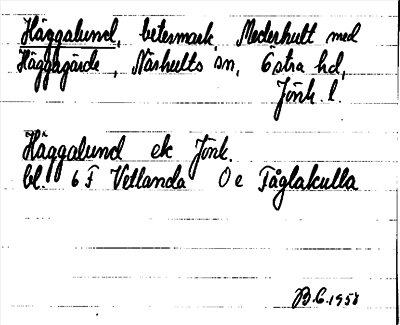 Häggalund, betesmark, Mederhult med
Häggagärde, Näshults sn, Östra hd,
Jönk. l.
Häggalund ek Jönk.
bl. 6 F Vetlanda 0 e Fåglakulla
B.C. 1958